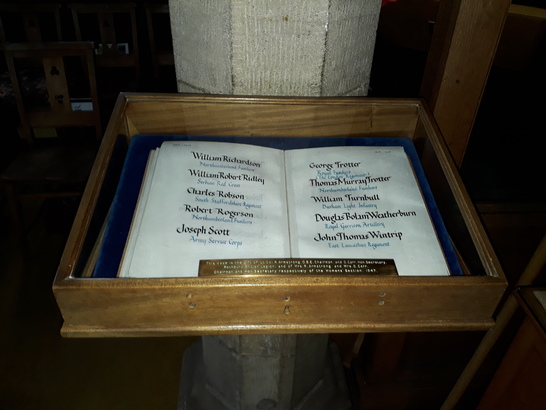 William Richardson
Northumberland Fusiliers
William Robert Ridley
Serbian Red Cross
Charles Robson
South Staffordshire Regiment
Robert Rogerson
Northumberland Fusiliers
Joseph Scott
Army Service Corps
George Trotter
Thomas Murray Trotter
Northumberland Fusiliers
William Turnbull
Durham Light Infantry
Douglas Bolam Weatherburn
Royal Garrison Artillery
John Thomas Wintrip
East Lancashire Regiment
Chairman and Hon Secretary respectively of the Womens Section 1947